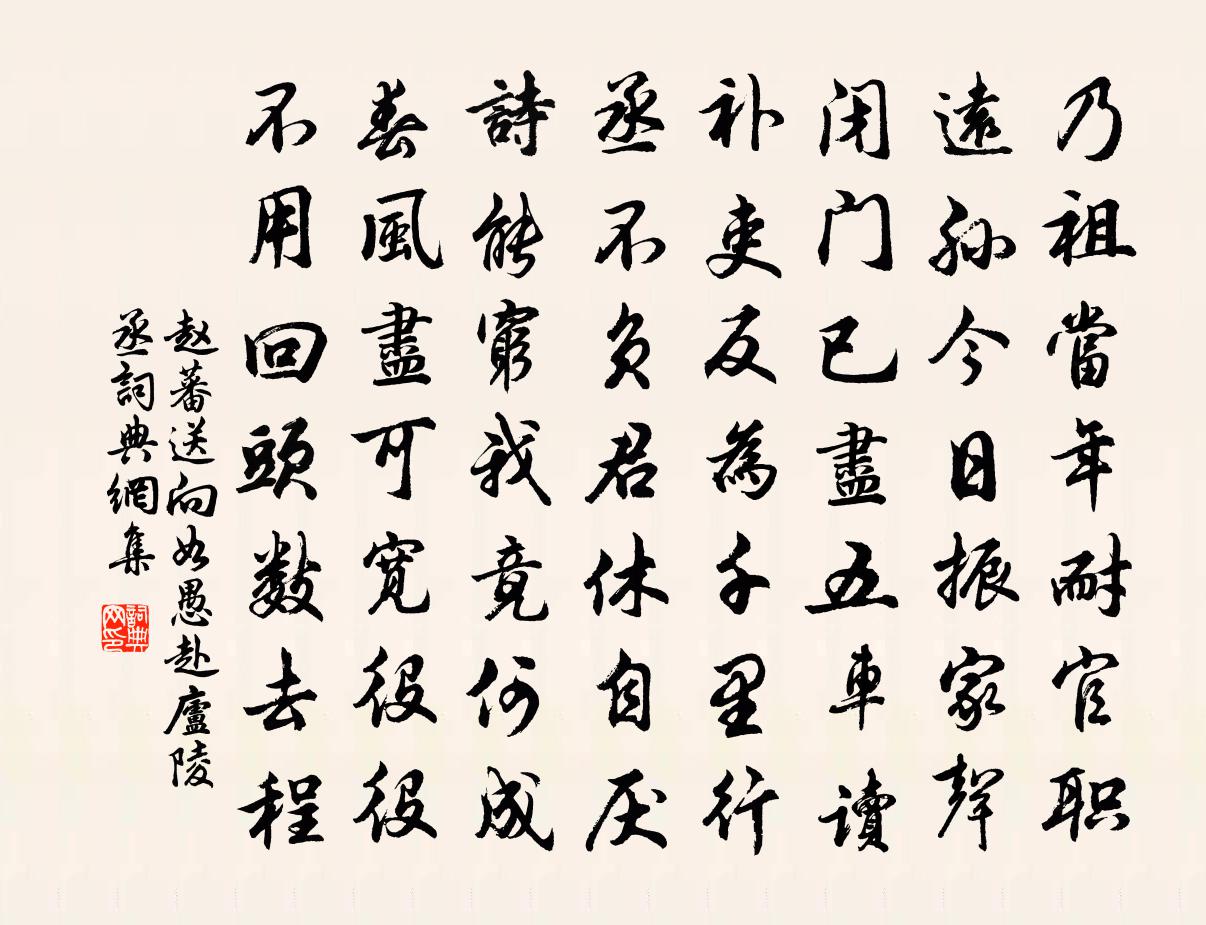 乃祖當年耐官职
遠孙今日振家聲
闭门已盡五車讀
补吏反為千里行
丞不负君休自厌
詩能窮我竟何成
春風盡可寬役役
不用回頭数去程
赵蕃送向如愚赴廬陵
丞詞典網集
詞典网印